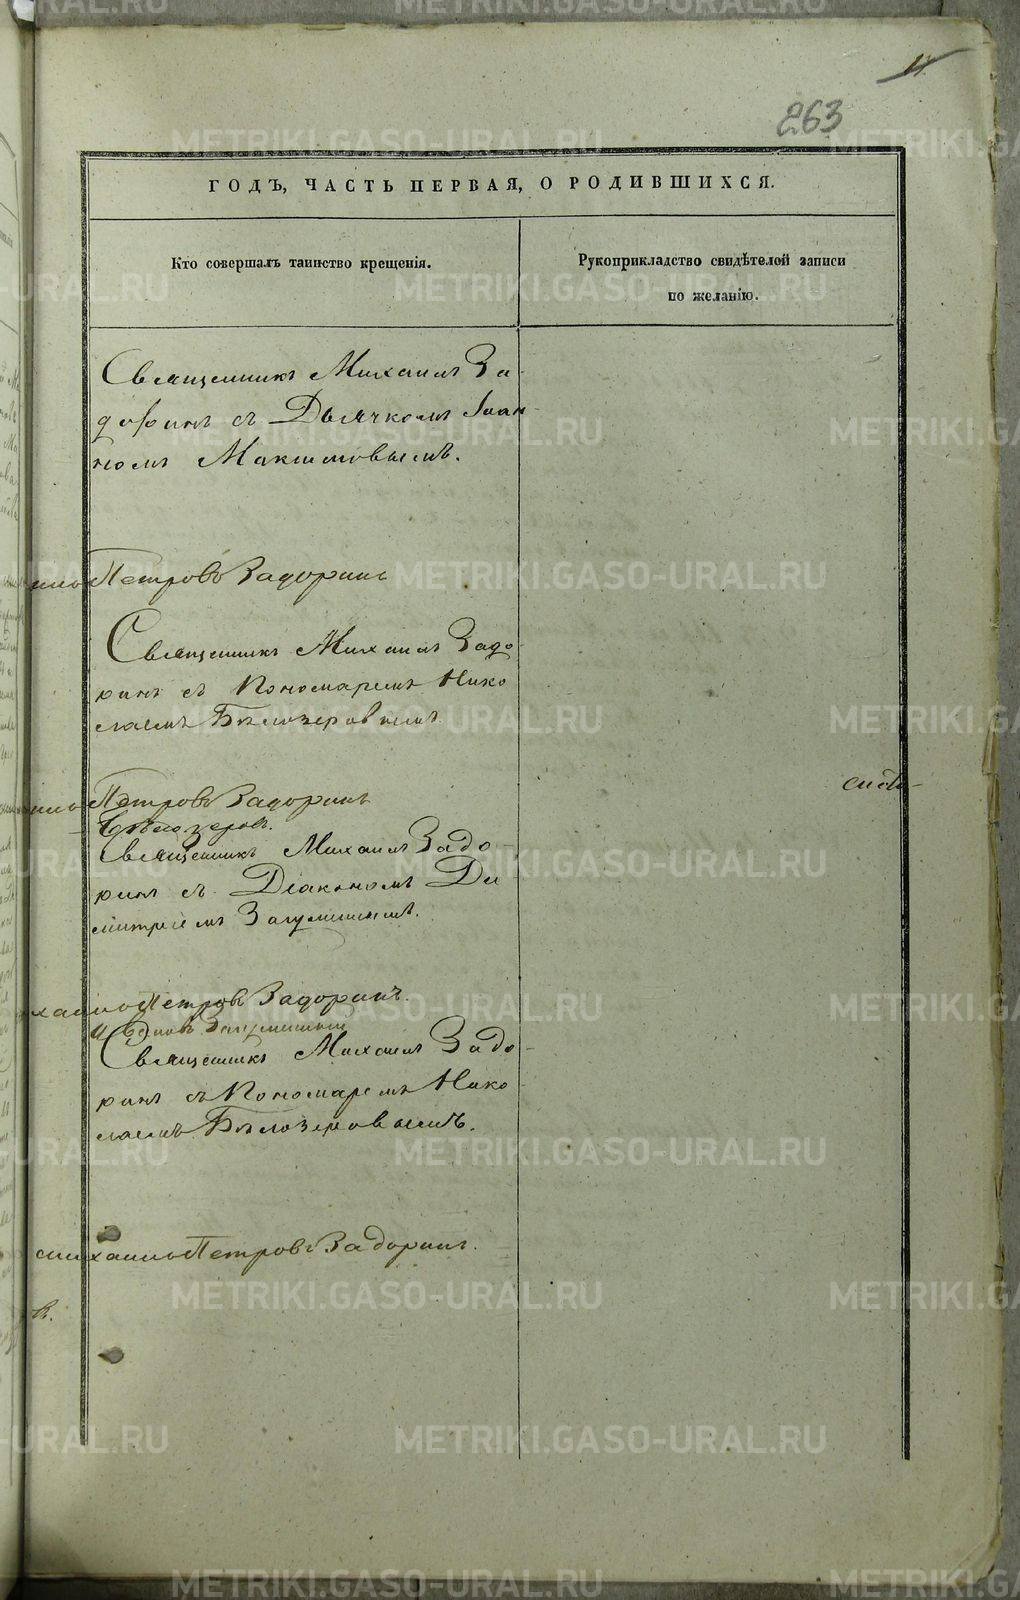 11
263
ГОДЪ, ЧАСТЬ ПЕРВАЯ, О РОДИВШИХСЯ.
Кто совершалъ таинство крещенія.
Рукоприкладство свидѣтелей записи
по желанію.
Священникъ Михаилъ За-
доринъ съ Дьячкомъ Іоан-
номъ Максимовымъ.
Петровъ Задоринъ
Священникъ Михаилъ Задо-
ринъ съ Пономаремъ Нико
лаемъ Бѣлозеровымъ.
Петровъ Задоринъ
Бѣлозеровъ.
Священникъ Михаилъ Задо-
ринъ съ Діакономъ Ди
митріемъ
хаилъ Петровъ Задоринъ.
Священникъ Михаилъ Задо-
ринъ съ Пономаремъ Нико
лаемъ Бѣлозеровымъ.
Михаилъ Петровъ Задоринъ.
въ.
METRIKI.GASO-URAL.RU